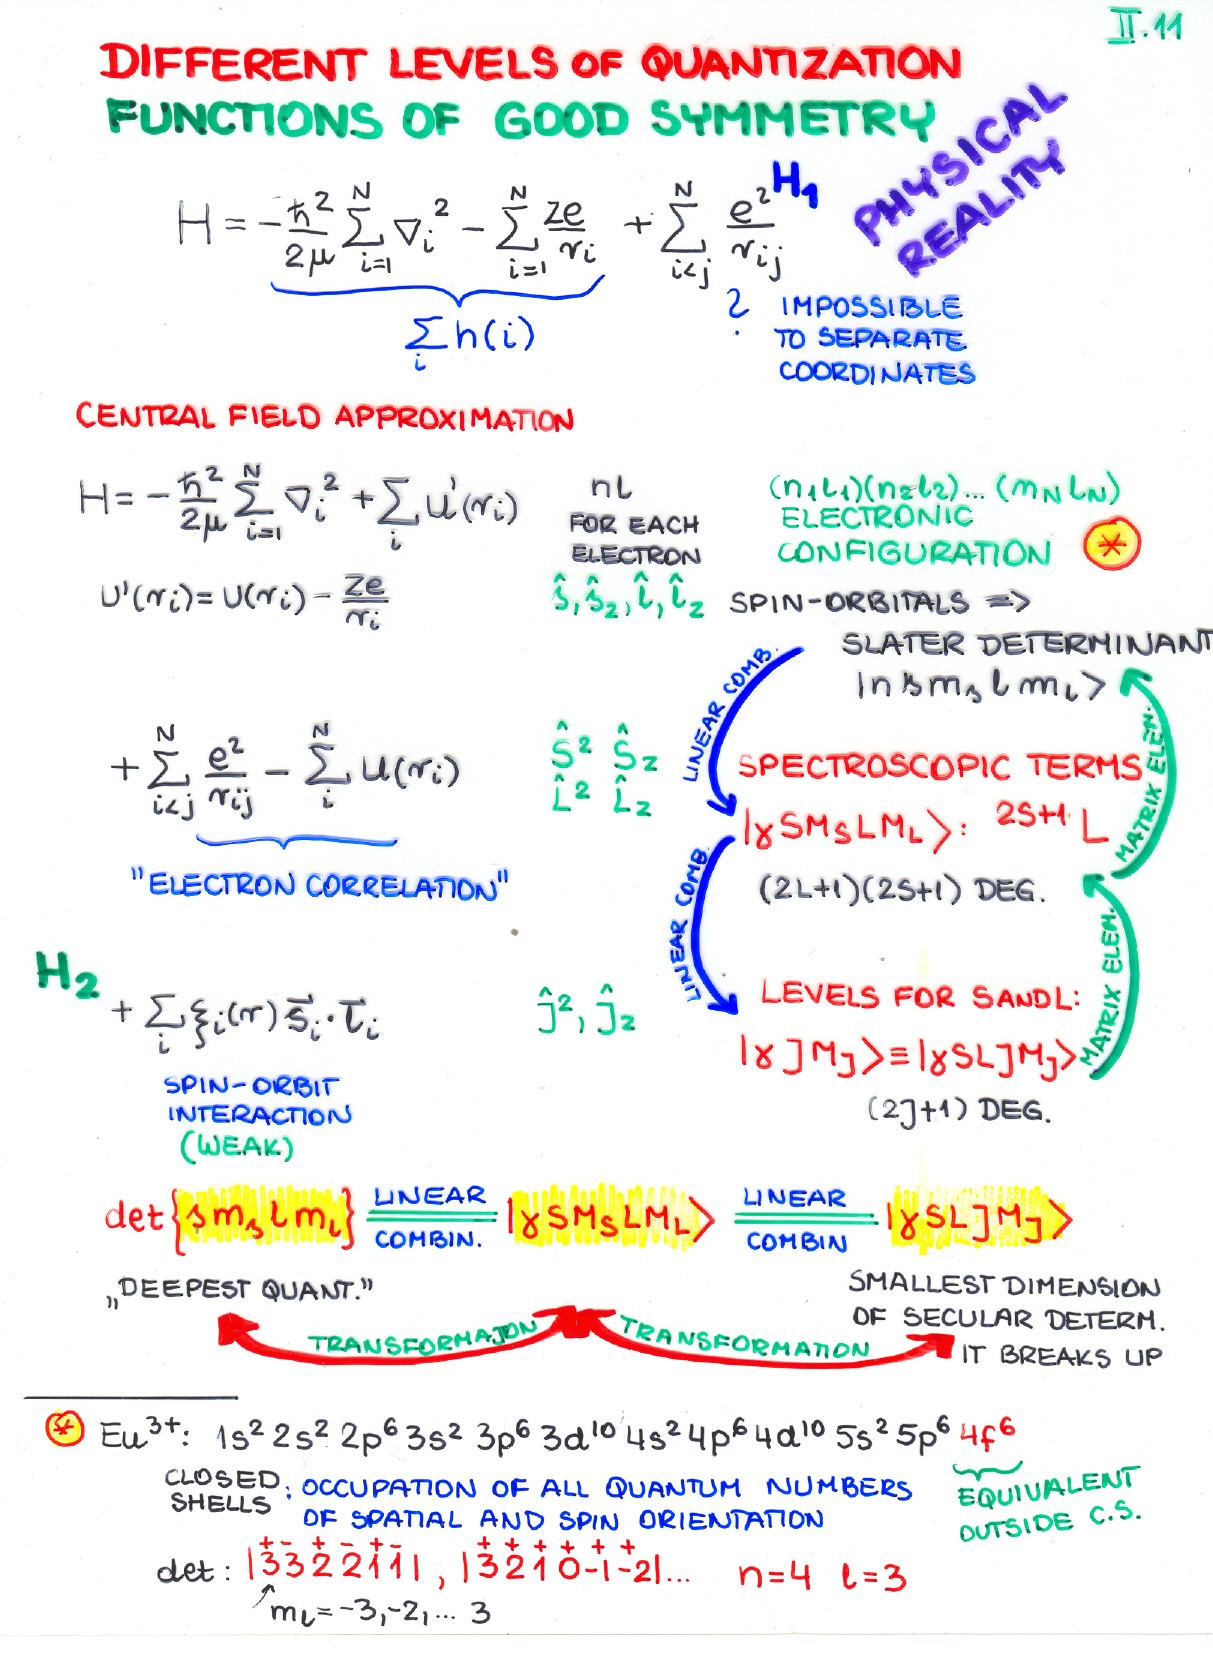 II.11
DIFFERENT LEVELS OF QUANTIZATION
FUNCTIONS OF GOOD SYMMETRY
PHYSICAL
REALITY
H = -ħ²/2μ Σ_{i=1}^{N} ∇_i² - Σ_{i=1}^{N} ze/r_i + Σ_{i<j}^{N} e²/r_ij H₁
Σ_i h(i)
? IMPOSSIBLE
TO SEPARATE
COORDINATES
CENTRAL FIELD APPROXIMATION
H = -ħ²/2μ Σ_{i=1}^{N} ∇_i² + Σ_i U'(r_i)
nl
FOR EACH
ELECTRON
(n₁l₁)(n₂l₂)... (m_N l_N)
ELECTRONIC
CONFIGURATION *
U'(r_i) = U(r_i) - ze/r_i
ŝ, ŝ_z, l̂, l̂_z
SPIN-ORBITALS =>
SLATER DETERMINANT
|n s m_s l m_l>
LINEAR COMB.
MATRIX ELEM.
+ Σ_{i<j}^{N} e²/r_ij - Σ_i^{N} U(r_i)
"ELECTRON CORRELATION"
Ŝ² Ŝ_z
L̂² L̂_z
SPECTROSCOPIC TERMS
|γSM_S LM_L>: ^{2S+1}L
(2L+1)(2S+1) DEG.
LINEAR COMB
MATRIX ELEM.
H₂
+ Σ_i ξ_i(r) s⃗_i · l⃗_i
SPIN-ORBIT
INTERACTION
(WEAK)
ĵ², ĵ_z
LEVELS FOR S AND L:
|γ J M_J> ≡ |γSLJM_J>
(2J+1) DEG.
det{s m_s l m_l} LINEAR COMBIN. |γSM_S LM_L> LINEAR COMBIN |γSLJM_J>
„DEEPEST QUANT."
SMALLEST DIMENSION
OF SECULAR DETERM.
IT BREAKS UP
TRANSFORMAJON
TRANSFORMATION
* Eu³⁺: 1s² 2s² 2p⁶ 3s² 3p⁶ 3d¹⁰ 4s² 4p⁶ 4d¹⁰ 5s² 5p⁶ 4f⁶
CLOSED
SHELLS : OCCUPATION OF ALL QUANTUM NUMBERS
OF SPATIAL AND SPIN ORIENTATION
EQUIVALENT
OUTSIDE C.S.
+ - + - + - + + + + + +
det: |3 3 2 2 1 1|, |3 2 1 0 -1 -2|... n=4 l=3
m_l = -3, -2, ... 3